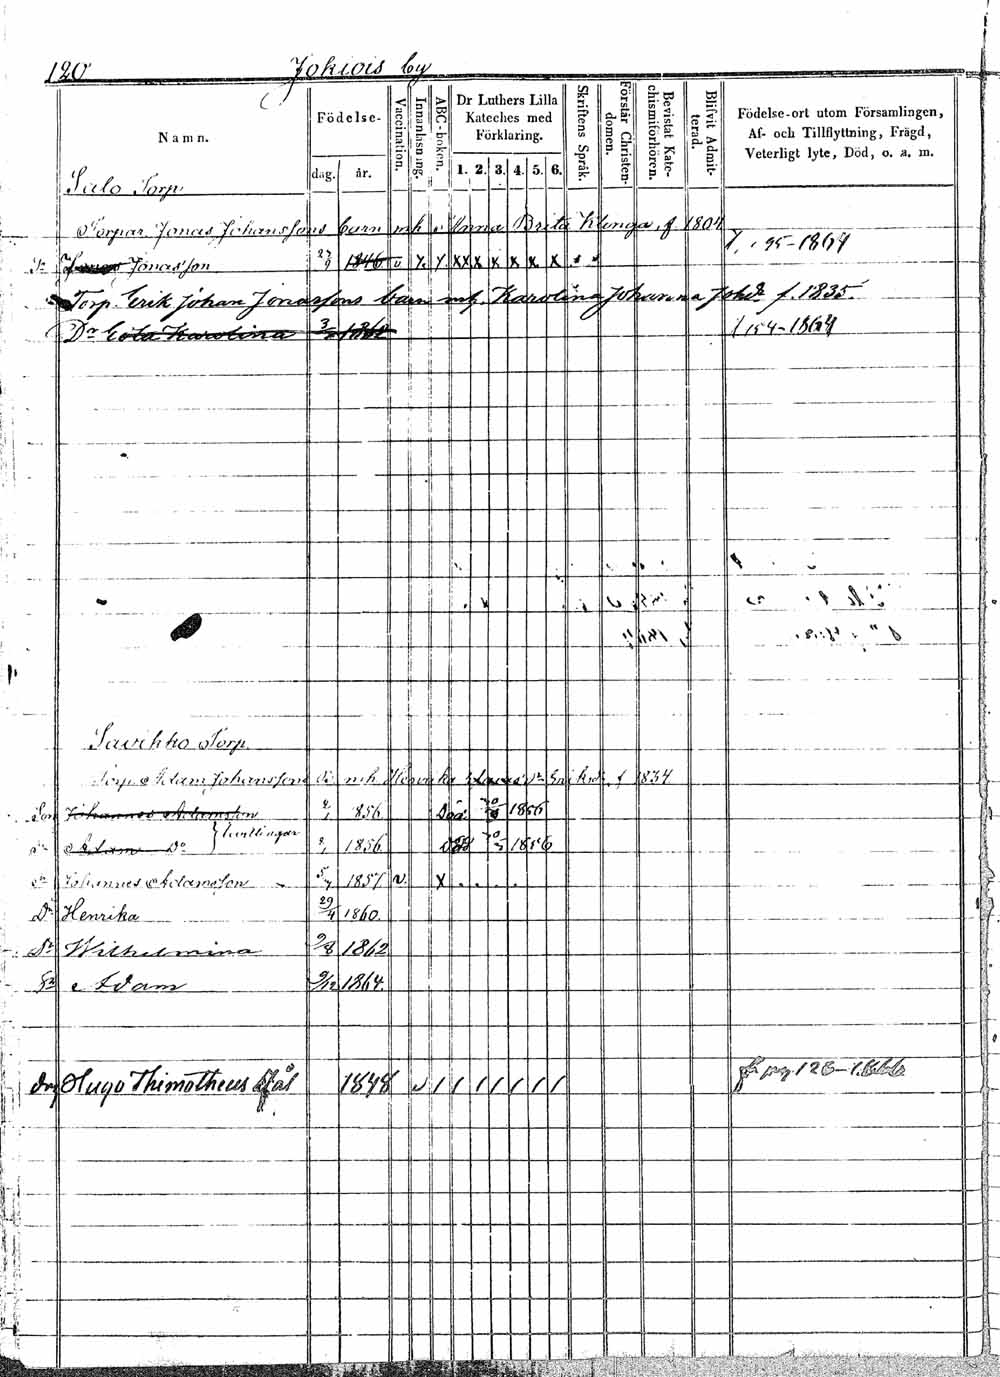 120 Jokiois by
Namn.
Födelse-
dag. år.
Vaccination.
Innanläsning.
ABC-boken.
Dr Luthers Lilla
Kateches med
Förklaring.
1. 2. 3. 4. 5. 6.
Skriftens Språk.
Förstår Christen-
domen.
Bevistat Kate-
chismiförhören.
Blifvit Admit-
terad.
Födelse-ort utom Församlingen,
Af- och Tillflyttning, Frägd,
Veterligt lyte, Död, o. a. m.
Salo Torp
Torpar. Jonas Johanssons barn mh Anna Brita Klunga, f 1804
95-1864
Sn Jonasson 27/9 1846 v x x x x x x
Torp. Erik Johan Jonassons barn mh. Karolina Johanna Johsdr f. 1835.
Dr Karolina 1862 154-1864
Savikko Torp.
Torp. Adam Johanssons mh Henrika f 1834
Son Johannes Adamsson 1856 Död 1856
Sn Adam Do } tvillingar 1856 Död 1856
Sn Johannes Adamsson 5/7 1857 v. x . . . .
Dr Henrika 29/4 1860.
Dr Wilhelmina 9/8 1862
Sn Adam 9/12 1864.
Drg Hugo Thimotheus 1848 v / / / / / / / /
pag 128-1866